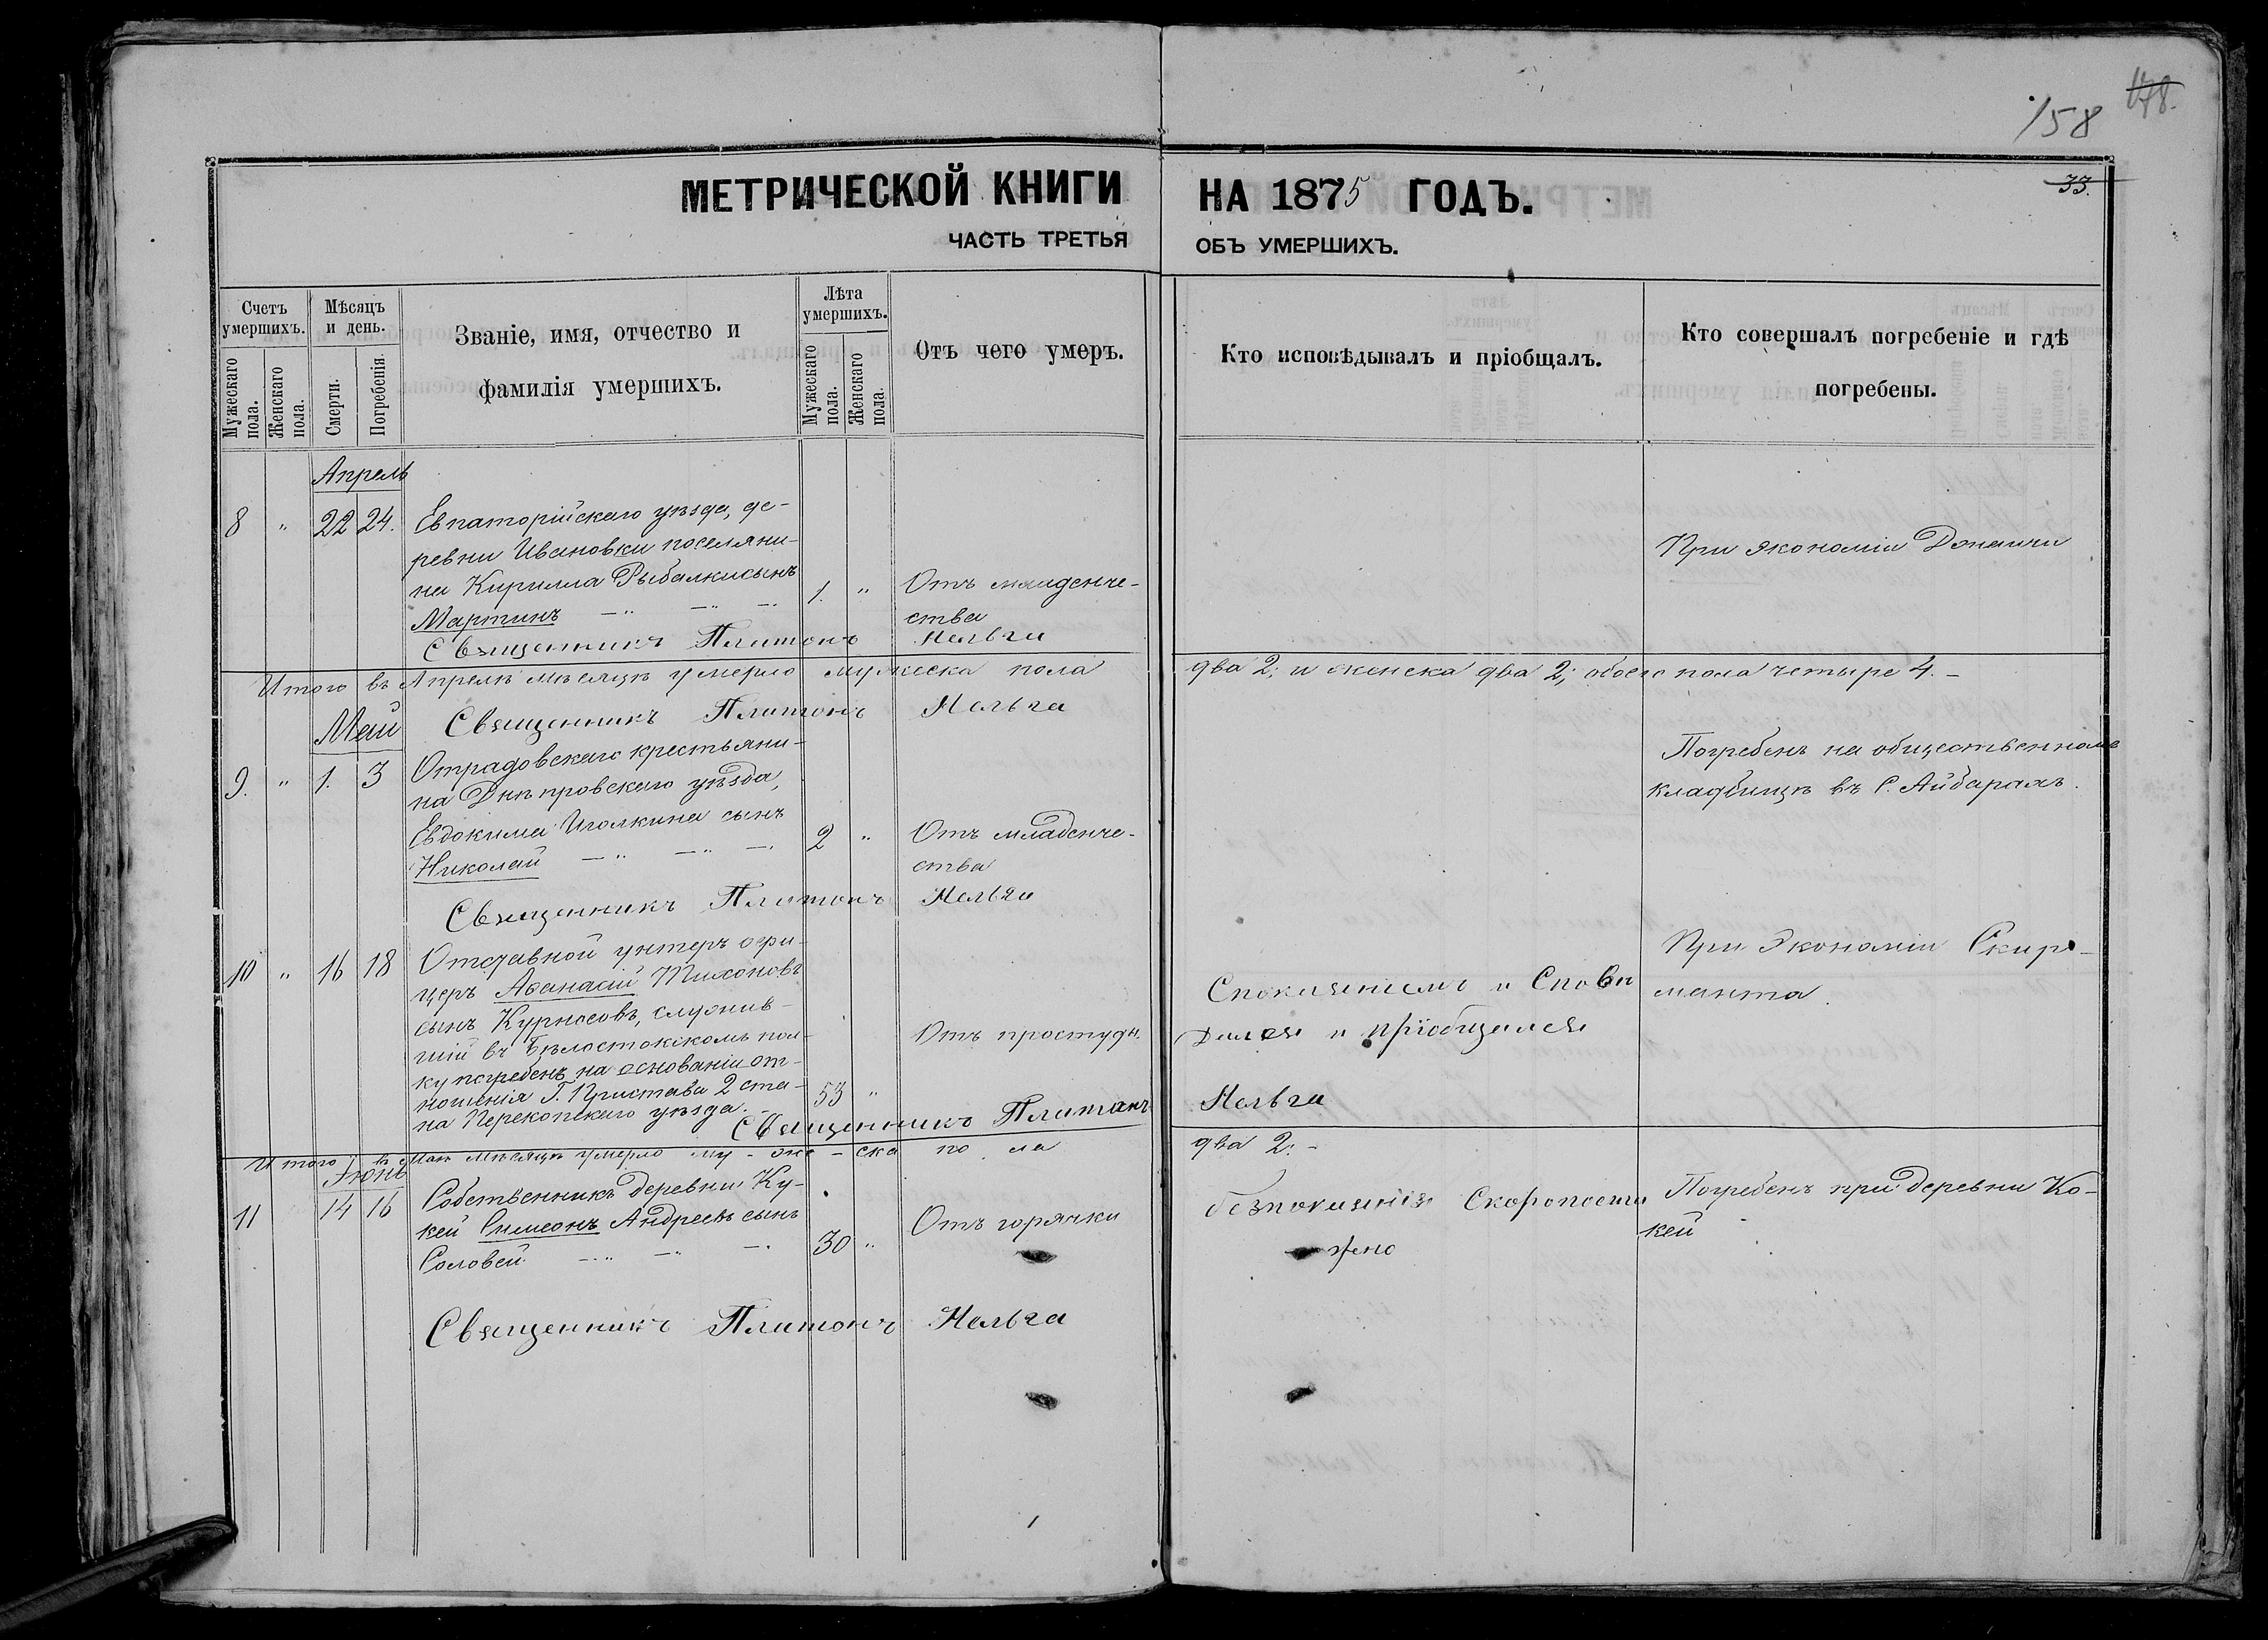 158
178.
33.
МЕТРИЧЕСКОЙ КНИГИ НА 1875 ГОДЪ.
ЧАСТЬ ТРЕТЬЯ ОБЪ УМЕРШИХЪ.
Счетъ умершихъ.
Мужескаго пола.
Женскаго пола.
Мѣсяцъ и день.
Смерти.
Погребенія.
Званіе, имя, отчество и
фамилія умершихъ.
Лѣта умершихъ.
Мужескаго пола.
Женскаго пола.
Отъ чего умеръ.
Кто исповѣдывалъ и пріобщалъ.
Кто совершалъ погребеніе и гдѣ
погребены.
Апрель
8 " 22 24. Евпаторійскаго уѣзда, де-
ревни Ивановки поселяни-
на Кирилла Рыбалки сынъ
Мартинъ —"— —"— —.
1. "
Отъ младенче-
ства
При экономіи
Священникъ Платонъ Мельга
Итого въ Апрелѣ мѣсяцѣ умерло мужеска пола два 2; и женска два 2; обоего пола четыре 4. –
Священникъ Платонъ Мельга
Май
9. " 1. 3 Отрадовскаго крестьяни-
на Днѣпровскаго уѣзда,
Евдокима Иголкина сынъ
Николай —"— —"— —.
2 "
Отъ младенче-
ства
Погребенъ на общественномъ
кладбищѣ въ С. Айбарахъ.
Священникъ Платонъ Мельга
10 " 16 18 Отставной унтеръ офи-
церъ Аѳанасій Тихоновъ
сынъ Курносовъ, служив-
шій въ Бѣлостокскомъ пол-
ку погребенъ на основаніи от-
ношенія Г. Пристава 2 ста-
на Перекопскаго уѣзда. –
53 "
Отъ простуды.
Спокаяніемъ и Сповѣ
дался и пріобщался
При Экономіи Скир-
мента.
Священникъ Платонъ Мельга
Итого въ Маѣ мѣсяцѣ умерло му-же-ска по ла два 2. –
Іюнь
11 14 16 Собственникъ деревни Ку-
кей Симеонъ Андреевъ сынъ
Соловей. —"— —"— —.
30 "
Отъ горячки
безпокаянія Скоропости
жно
Погребенъ при деревни Ко-
кей
Священникъ Платонъ Мельга